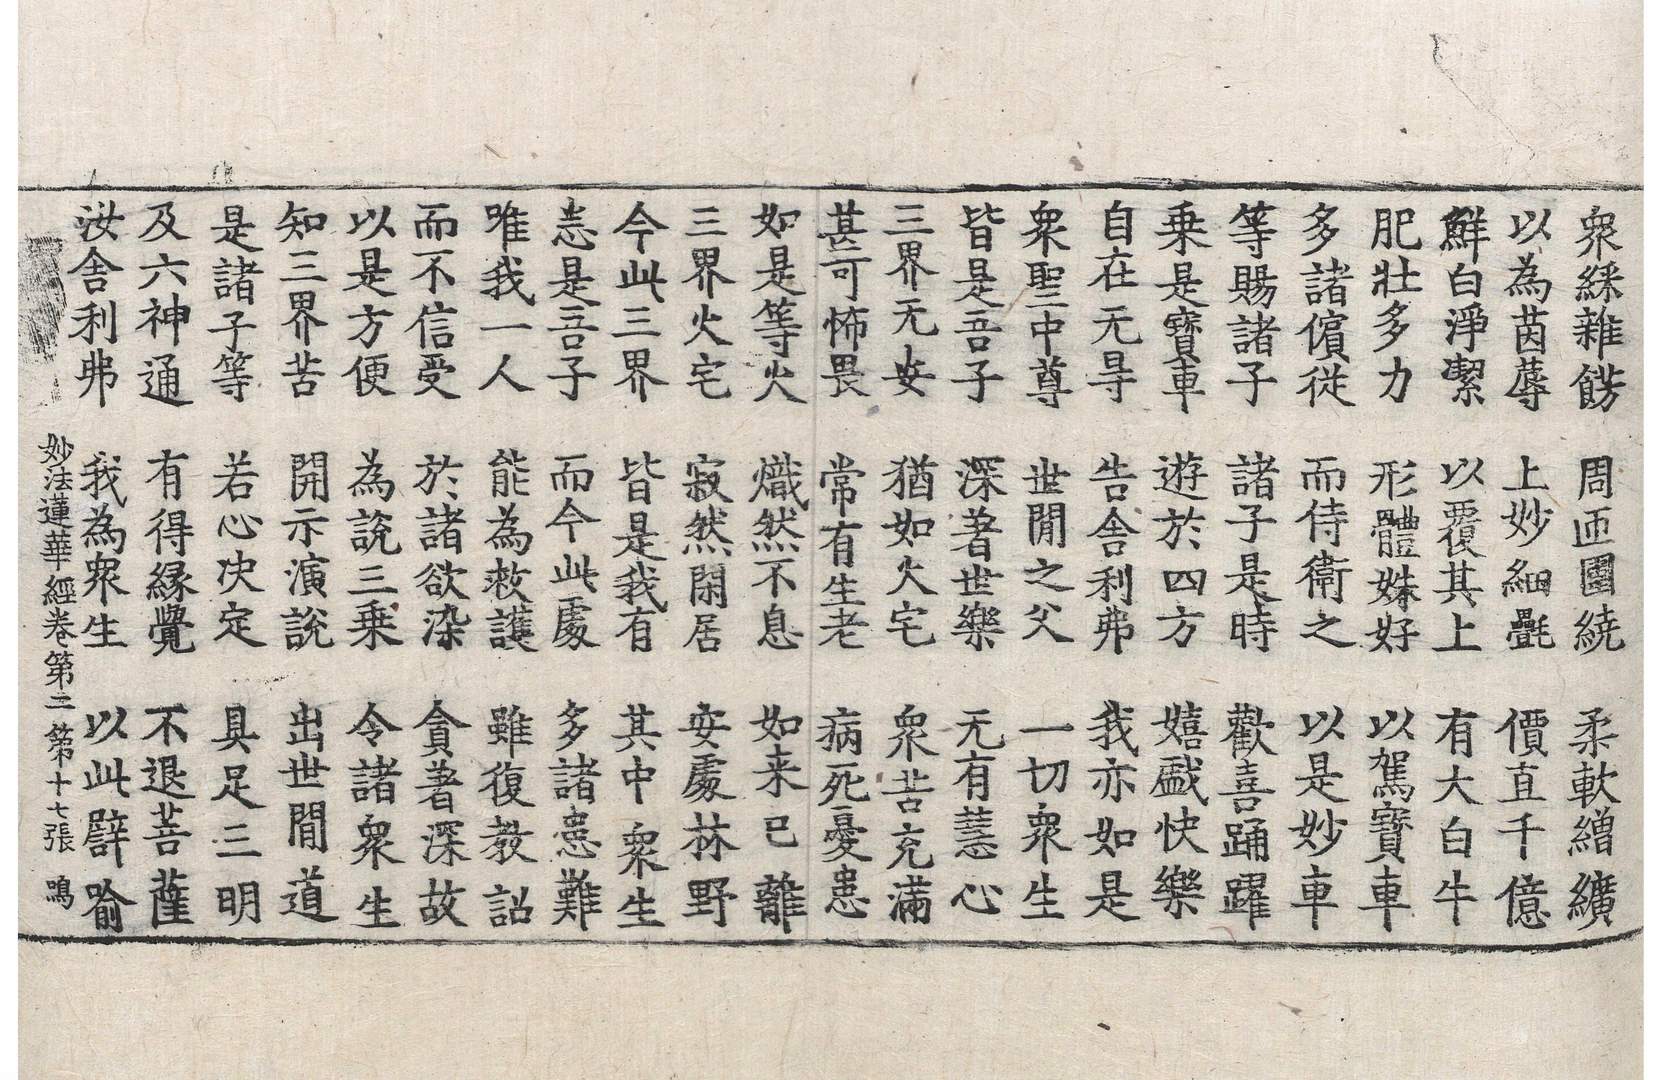 衆綵雜餝　周匝圍繞　柔軟繒纊
以為茵蓐　上妙細氎　價直千億
鮮白淨潔　以覆其上　有大白牛
肥壯多力　形體姝好　以駕寶車
多諸儐從　而侍衛之　以是妙車
等賜諸子　諸子是時　歡喜踊躍
乗是寶車　遊於四方　嬉戲快樂
自在无㝵　告舎利弗　我亦如是
衆聖中尊　世閒之父　一切衆生
皆是吾子　深著世樂　无有慧心
三界无安　猶如火宅　衆苦充滿
甚可怖畏　常有生老　病死憂患
如是等火　熾然不息　如来已離
三界火宅　寂然閑居　安處林野
今此三界　皆是我有　其中衆生
悉是吾子　而今此處　多諸患難
唯我一人　能為救護　雖復教詔
而不信受　於諸欲染　貪著深故
以是方便　為說三乗　令諸衆生
知三界苦　開示演說　出世閒道
是諸子等　若心决定　具足三明
及六神通　有得縁覺　不退菩薩
汝舎利弗　我為衆生　以此譬喻
妙法蓮華經卷第二　第十七張　鳴